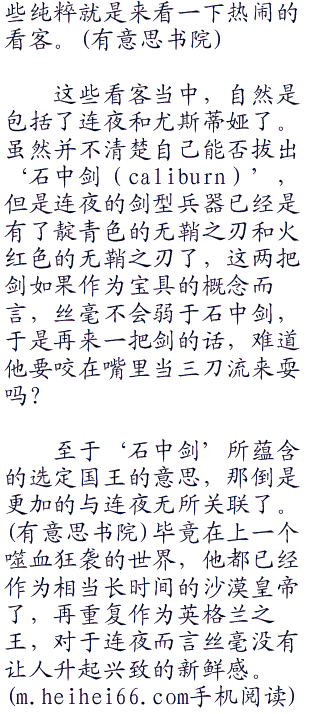 些纯粹就是来看一下热闹的
看客。(有意思书院)
这些看客当中，自然是
包括了连夜和尤斯蒂娅了。
虽然并不清楚自己能否拔出
‘石中剑（caliburn）’，
但是连夜的剑型兵器已经是
有了靛青色的无鞘之刃和火
红色的无鞘之刃了，这两把
剑如果作为宝具的概念而
言，丝毫不会弱于石中剑，
于是再来一把剑的话，难道
他要咬在嘴里当三刀流来耍
吗？
至于‘石中剑’所蕴含
的选定国王的意思，那倒是
更加的与连夜无所关联了。
(有意思书院)毕竟在上一个
噬血狂袭的世界，他都已经
作为相当长时间的沙漠皇帝
了，再重复作为英格兰之
王，对于连夜而言丝毫没有
让人升起兴致的新鲜感。
(m.heihei66.com手机阅读)